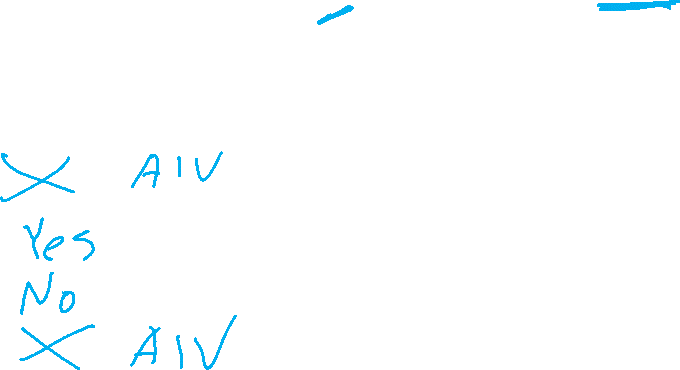 X AIV
Yes
No
X AIV